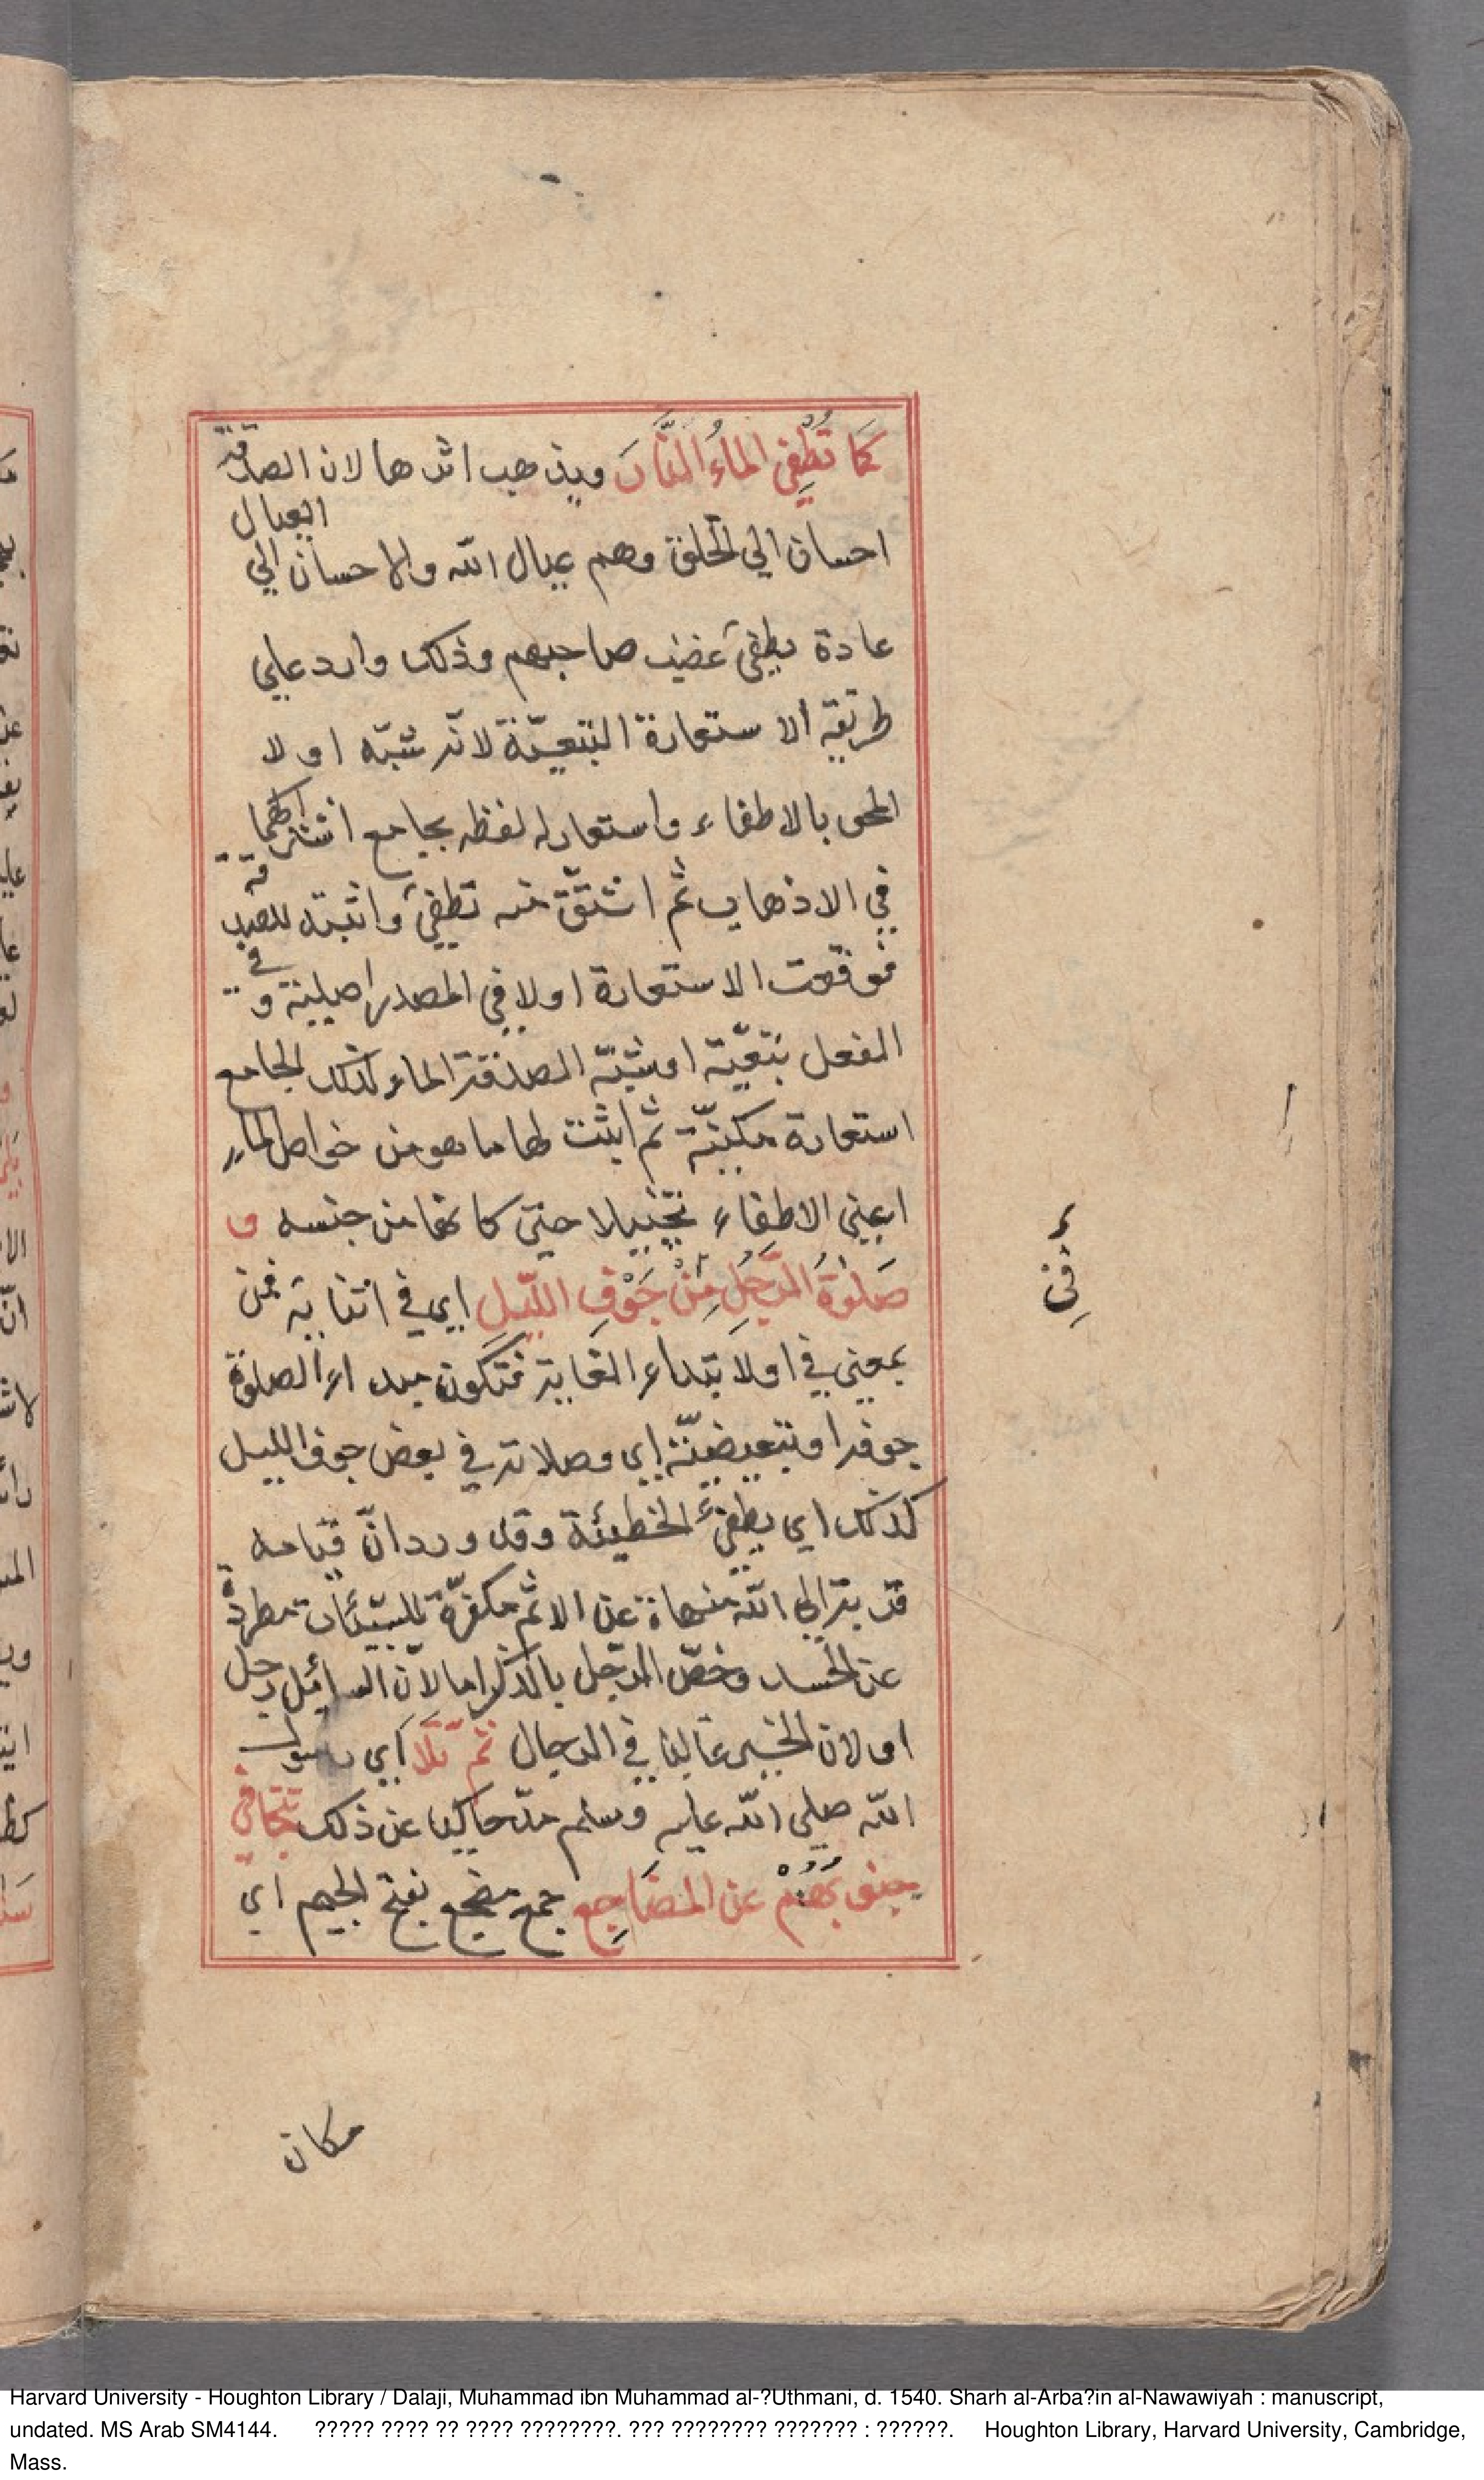 كما تطفئ الماء النار ويذهب اثرها لان الصدقة
احسان الي الخلق وهم عيال الله والاحسان الي العيال
عادة يطفئ غضب صاحبهم وذلك وارد علي
طريقة الاستعارة التبعيّة لانه شبّه اولا
المحى بالاطفاء واستعار له لفظه بجامع اشتراكهما
في الاذهاب ثم اشتقّ منه تطفئ واثبته للصدقة
فوقعت الاستعارة اولا في المصدر اصلية وفي
الفعل تبعيّة او شبّه الصدقة الماء لذلك الجامع
استعارة مكنيّة ثم اثبت لها ما هو من خواص الماء
اعني الاطفاء تخييلا حتى كانها من جنسه و
صَلوٰةُ الرَّجُلِ مِنْ جَوْفِ اللّيل اي في اثنايه فمن
بمعني في او لابتداء الغاية فتكون مبداء الصلوة
جوفه او تبعيضيّة اي وصلاته في بعض جوف الليل
كذلك اي يطفئ الخطيئة وقد ورد انّ قيامه
قربة الي الله منهاة عن الاثم مكفرة للسيّئات مطردة
عن الجسد وخصّ الرّجل بالذكر اما لانّ السائل رجل
او لان الخير غالبا في الرجال ثمّ تَلَا اي رسول
الله صلي الله عليه وسلم حاكيا عن ذلك تتجافى
جنوبهُمْ عن المضَاجِع جمع مضجع بفتح الجيم اي
مكان